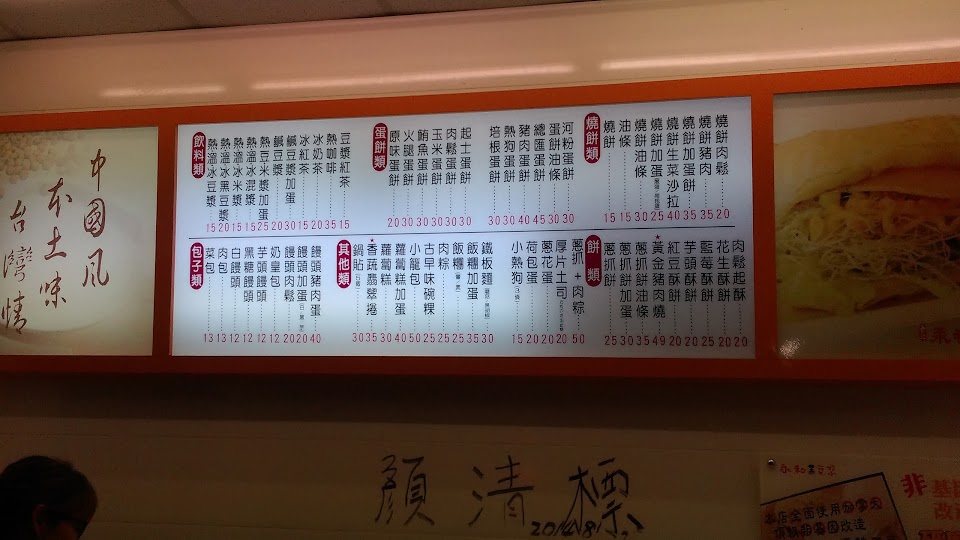 中國風
本土味
台灣情
飲料類
熱溫冰豆漿 15
熱溫冰黑豆漿 20
熱溫冰米漿 15
熱溫冰混漿 15
熱豆米漿加蛋 25
鹹豆漿 20
鹹豆漿加蛋 30
冰紅茶 15
冰奶茶 20
熱咖啡 35
豆漿紅茶 15
蛋餅類
原味蛋餅 20
火腿蛋餅 30
鮪魚蛋餅 30
玉米蛋餅 30
肉鬆蛋餅 30
起士蛋餅 30
培根蛋餅 30
熱狗蛋餅 30
豬肉蛋餅 40
總匯蛋餅 45
蛋餅油條 30
河粉蛋餅 30
燒餅類
燒餅 15
油條 15
燒餅油條 30
燒餅加蛋 25
燒餅生菜沙拉 40
燒餅加蛋餅 35
燒餅豬肉 35
燒餅肉鬆 20
包子類
菜包 13
肉包 13
白饅頭 12
黑糖饅頭 12
芋頭饅頭 12
奶皇包 12
饅頭肉鬆 20
饅頭加蛋 20
饅頭豬肉蛋 40
其他類
鍋貼 30
★香蔬翡翠捲 35
蘿蔔糕 30
蘿蔔糕加蛋 40
小籠包 50
古早味碗粿 25
肉粽 25
飯糰 25
飯糰加蛋 35
鐵板麵 30
小熱狗 15
荷包蛋 20
蔥花蛋 20
厚片土司 20
蔥抓+肉粽 50
餅類
蔥抓餅 25
蔥抓餅加蛋 30
蔥抓餅油條 35
★黃金豬肉燒 49
紅豆酥餅 20
芋頭酥餅 20
藍莓酥餅 25
花生酥餅 20
肉鬆起酥 20
顏清標
永和豆漿
非基
改
本店全面使用